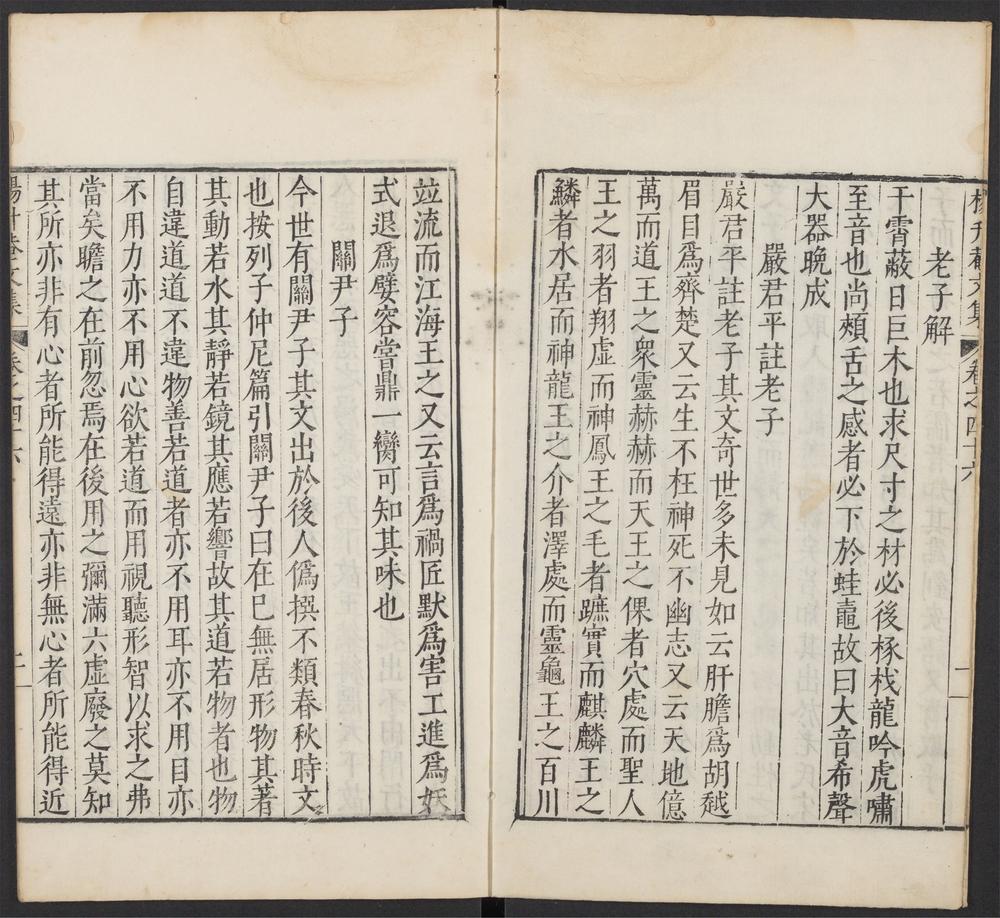 楊升菴文集 卷之四十六 一
老子解
干霄蔽日巨木也求尺寸之材必後椓杙龍吟虎嘯
至音也尚頰舌之感者必下於蛙黽故曰大音希聲
大器晚成
嚴君平註老子
嚴君平註老子其文奇世多未見如云肝膽爲胡越
眉目爲齊楚又云生不枉神死不幽志又云天地億
萬而道王之衆靈赫赫而天王之倮者穴處而聖人
王之羽者翔虛而神鳳王之毛者蹠實而麒麟王之
鱗者水居而神龍王之介者澤處而靈龜王之百川
竝流而江海王之又云言爲禍匠默爲害工進爲妖
式退爲孽容嘗鼎一臠可知其味也
關尹子
今世有關尹子其文出於後人僞撰不類春秋時文
也按列子仲尼篇引關尹子曰在已無居形物其著
其動若水其靜若鏡其應若響故其道若物者也物
自違道道不違物善若道者亦不用耳亦不用目亦
不用力亦不用心欲若道而用視聽形智以求之弗
當矣瞻之在前忽焉在後用之彌滿六虛廢之莫知
其所亦非有心者所能得遠亦非無心者所能得近
楊升菴文集 卷之四十六